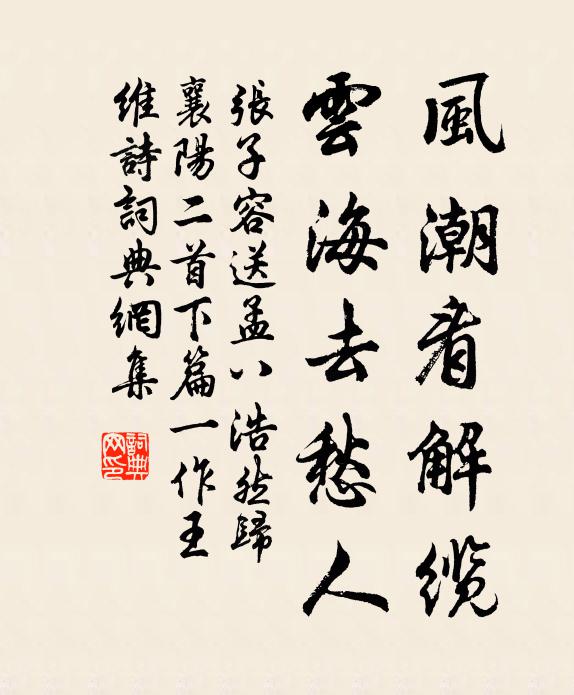 風潮看解纜
雲海去愁人
張子容送孟八浩然歸
襄陽二首下篇一作王
維詩詞典網集
詞典
网印